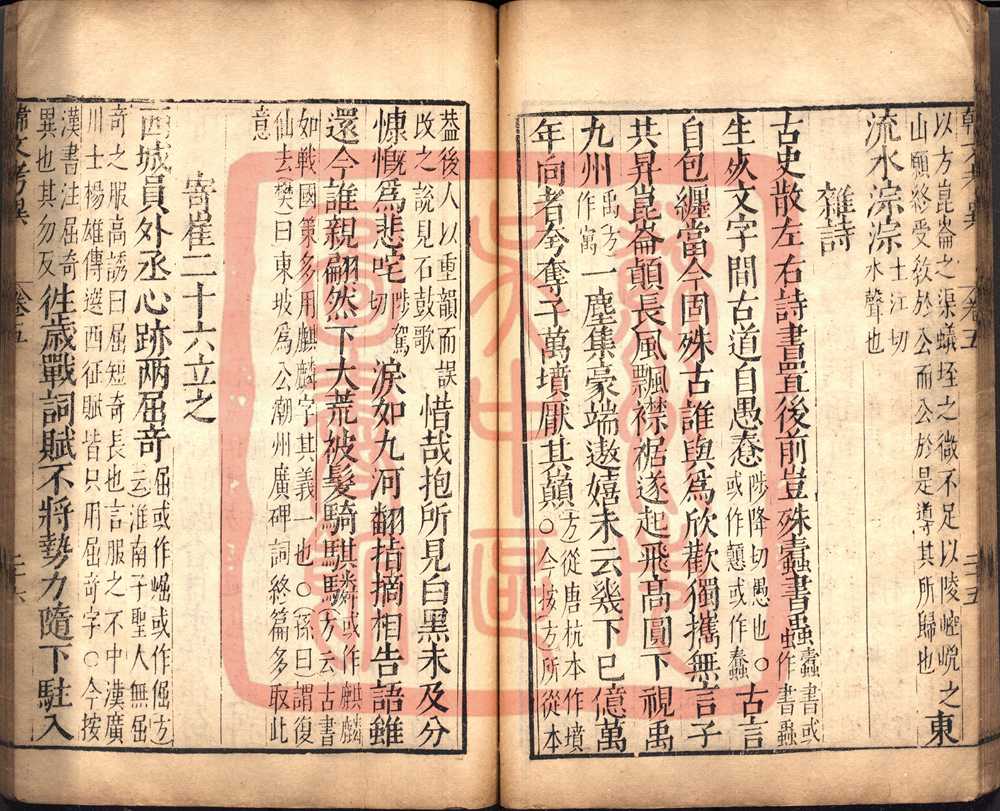 以方崑崙之渠蟻垤之微不足以陵崆峴之東
山願終受敎於公而公於是導其所歸也
流水淙淙士江切水聲也
雜詩
古史散左右詩書置後前豈殊蠹書蟲蠹書或作書蟲
生死文字間古道自愚惷陟降切愚也○或作戇或作蠢古言
自包纏當今固殊古誰與爲欣歡獨攜無言子
共昇崑崙顛長風飄襟裾遂起飛高圓下視禹
九州禹方作寓一塵集豪端遨嬉未云幾下巳億萬
年向者夸奪子萬墳厭其巔○方從唐杭本作墳今按方所從本
葢後人以重韻而誤改之說見石鼓歌惜哉抱所見白黑未及分
慷慨爲悲咤陟駕切淚如九河翻指摘相告語雖
還今誰親翩然下大荒被髮騎騏驎驎或作麟方云古書
如戰國策多用騏驎字其義一也○孫曰謂復
仙去樊曰東坡爲公潮州廣碑詞終篇多取此
意
寄崔二十六立之
西城員外丞心跡兩屈竒屈或作崛或作倔方云淮南子聖人無屈
竒之服高誘曰屈短竒長也言服之不中漢廣
川士楊雄傳遊西征賦皆只用屈竒字○今按
漢書注屈竒異也其勿反徃歲戰詞賦不將勢力隨下駐入
卷五
二十五
韓文考異
卷五
二十六